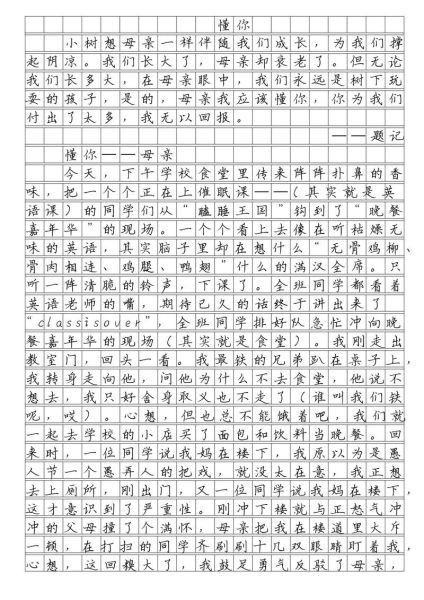 懂你
小树想母亲一样伴随我们成长，为我们撑
起阴凉。我们长大了，母亲却衰老了。但无论
我们长多大，在母亲眼中，我们永远是树下玩
耍的孩子，是的，母亲我应该懂你，你为我们
付出了太多，我无以回报。
——题记
懂你——母亲
今天，下午学校食堂里传来阵阵扑鼻的香
味，把一个个正在上催眠课——(其实就是英
语课)的同学们从“瞌睡王国”钩到了“晚餐
嘉年华”的现场。一个个看上去像在听枯燥无
味的英语，其实脑子里却在想什么“无骨鸡柳、
骨肉相连、鸡腿、鸭翅”什么的满汉全席。只
听一阵清脆的铃声，下课了。全班同学都看着
英语老师的嘴，期待已久的话终于讲出来了
“classisover”，全班同学排好队急忙冲向晚
餐嘉年华的现场(其实就是食堂)。我刚走出
教室门，回头一看。我最铁的兄弟趴在桌子上，
我转身走向他，问他为什么不去食堂，他说不
想去，我只好舍身取义也不走了(谁叫我们铁
呢，哎)。心想，但也总不能饿着吧，我们就
一起去学校的小店买了面包和饮料当晚餐。回
来时，一位同学说我妈在楼下，我原以为是愚
人节一个愚弄人的把戏，就没太在意，我正想
去上厕所，刚出门，又一位同学说我妈在楼下，
这才意识到了严重性。刚冲下楼就与正怒气冲
冲的父母撞了个满怀，母亲把我在楼道里大斥
一顿，在打扫的同学齐刷刷十几双眼睛盯着我，
心想，这回糗大了，我鼓足勇气反驳了母亲，